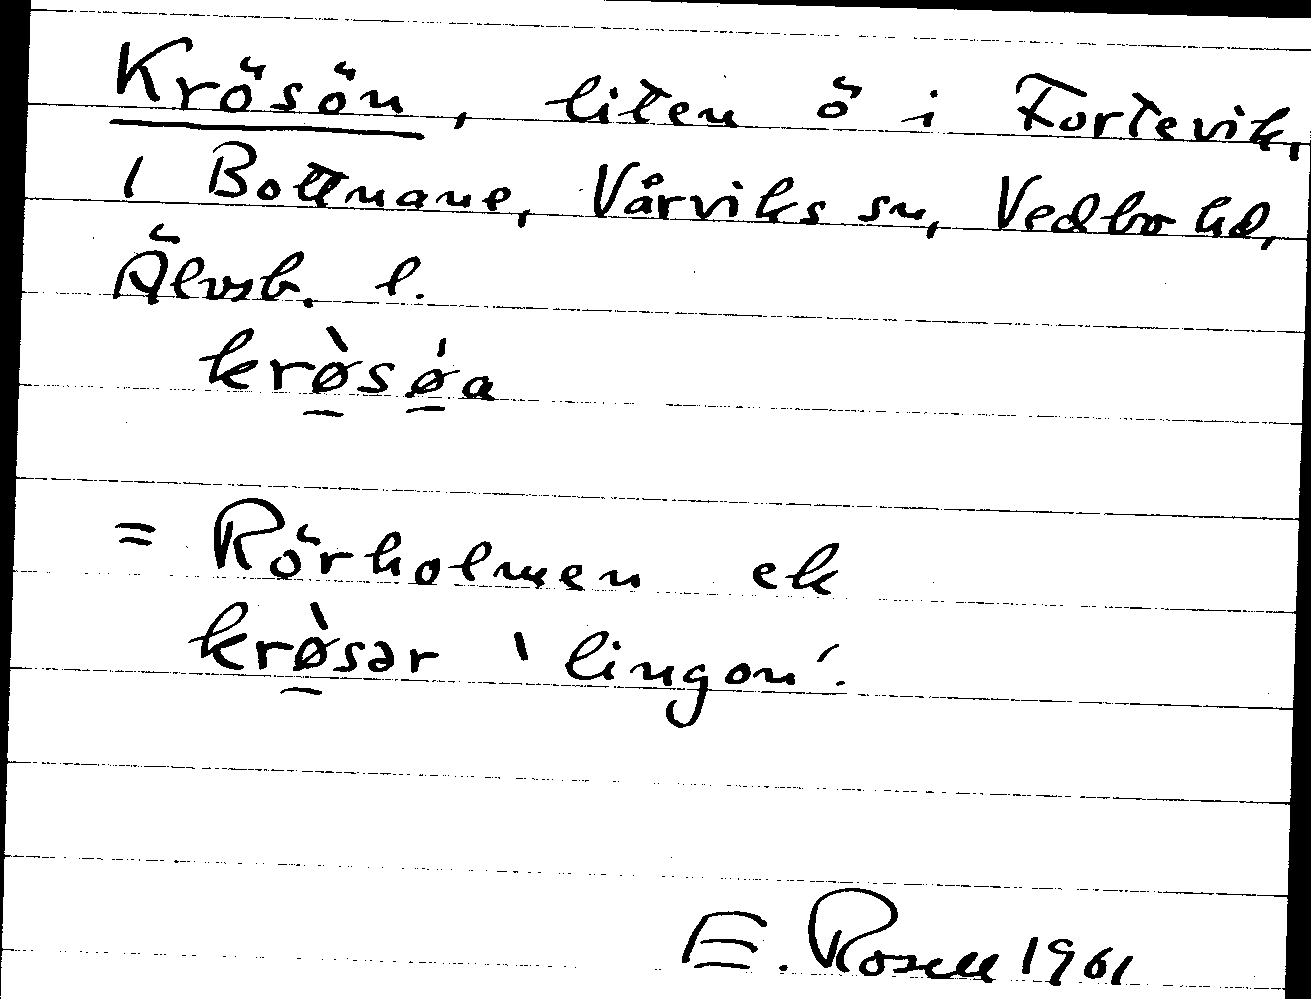 Krösön, liten ö i Fortevik,
i Bottnane, Vårviks sn, Vedbo hd,
Älvsb. l.
krø̀søa
= Rörholmen ek
krø̀sər 'lingon'.
E. Rosell 1961